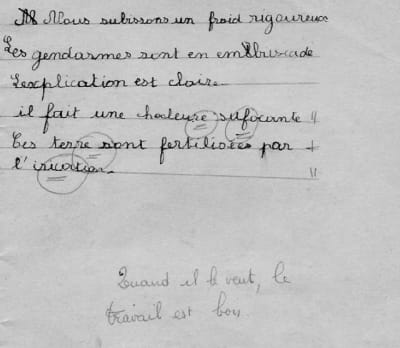 Nous subissons un froid rigoureux
Les gendarmes sont en embuscade
L'explication est claire
il fait une chaleure sufocante
Ces terre sont fertilisées par
l'irication.
Quand il le veut, le
travail est bon.